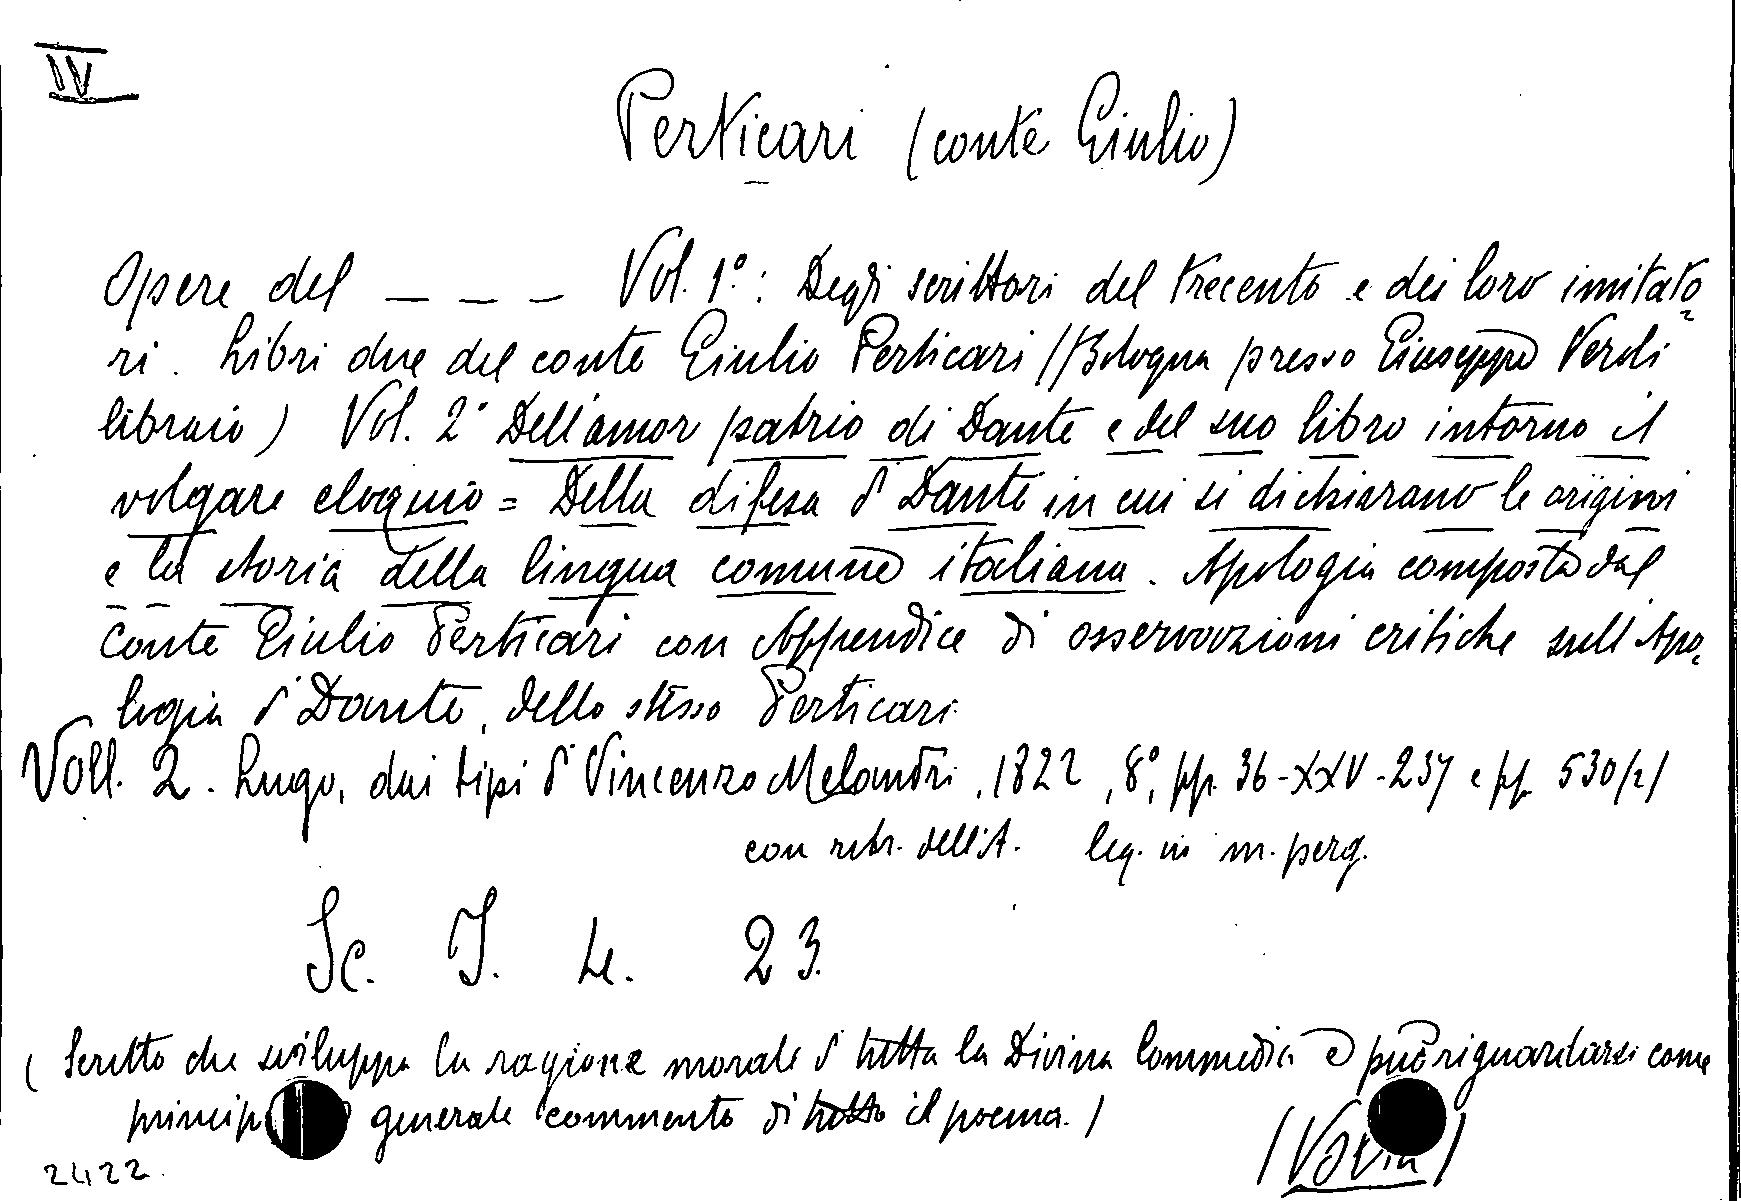 IV
Perticari (conte Giulio)
Opere del _ _ _ Vol. 1º: Degli scrittori del trecento e dei loro imitato
ri. Libri due del conte Giulio Perticari (Bologna presso Giuseppe Veroli
libraio) Vol. 2° Dell'amor patrio di Dante e del suo libro intorno il
volgare eloquio = Della difesa di Dante in cui si dichiarano le origini
e la storia della lingua comune italiana. Apologia composta dal
conte Giulio Perticari con Appendice di osservazioni critiche sull'Apo
logia di Dante, dello stesso Perticari.
Voll. 2. Lugo, dai tipi di Vincenzo Melandri, 1822, 8º, pp. 36-XXV-237 e pp. 530 (2)
con ritr. dell'A. leg. in m. perg.
Sc. I. Le. 23.
(Scritto che sviluppa la ragione morale di tutta la Divina Commedia e può riguardarsi come
princip generale commento di tutto il poema.)
2422.